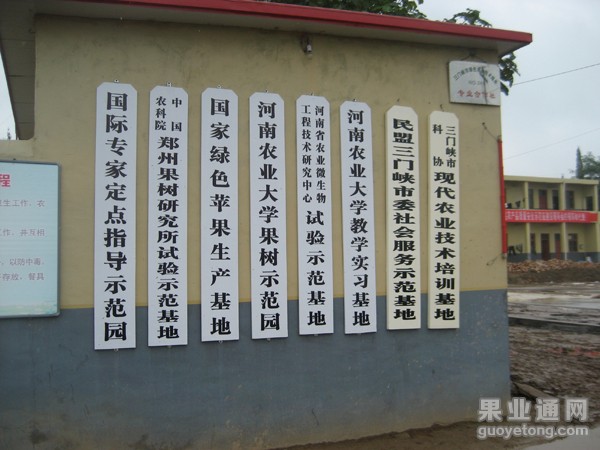 国际专家定点指导示范园
中国
农科院
郑州果树研究所试验示范基地
国家绿色苹果生产基地
河南农业大学果树示范园
河南省农业微生物
工程技术研究中心
试验示范基地
河南农业大学教学实习基地
民盟三门峡市委社会服务示范基地
三门峡市
科协
现代农业技术培训基地
专业合作社
程
果业通网
guoyetong.com